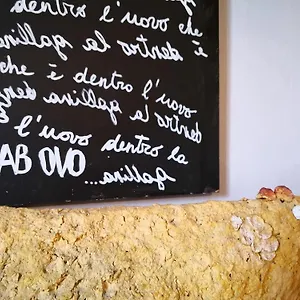 dentro l'uovo che
è dentro la gallina
che è dentro l'uovo
dentro la gallina che
è l'uovo dentro la
gallina...
AB OVO